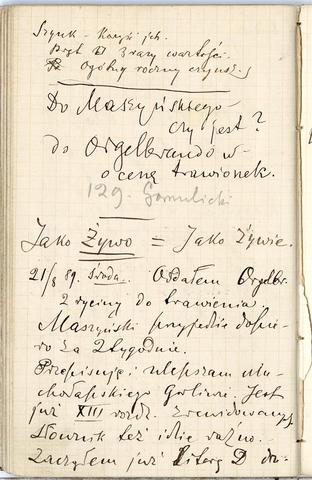 Szynk – Koryś jch.
Brzt 3 razy wartości.
Ogólny roczny czynsz.
Do Maszyńskiego
czy jest?
do Orgelbrandów –
o cenę trawionek.
129. Gomulicki
Jako Żywo = Jako Żywie.
21/8 89. Środa. Oddałem Orgelbr.
2 ryciny do trawienia.
Maszyński przyjedzie dopie-
ro za 2 tygodnie.
Przepisuję i ulepszam
gorliwie. Jest
już XIII rozdz. zrewidowanych
Słownik też idzie raźno.
Zacząłem już literę D